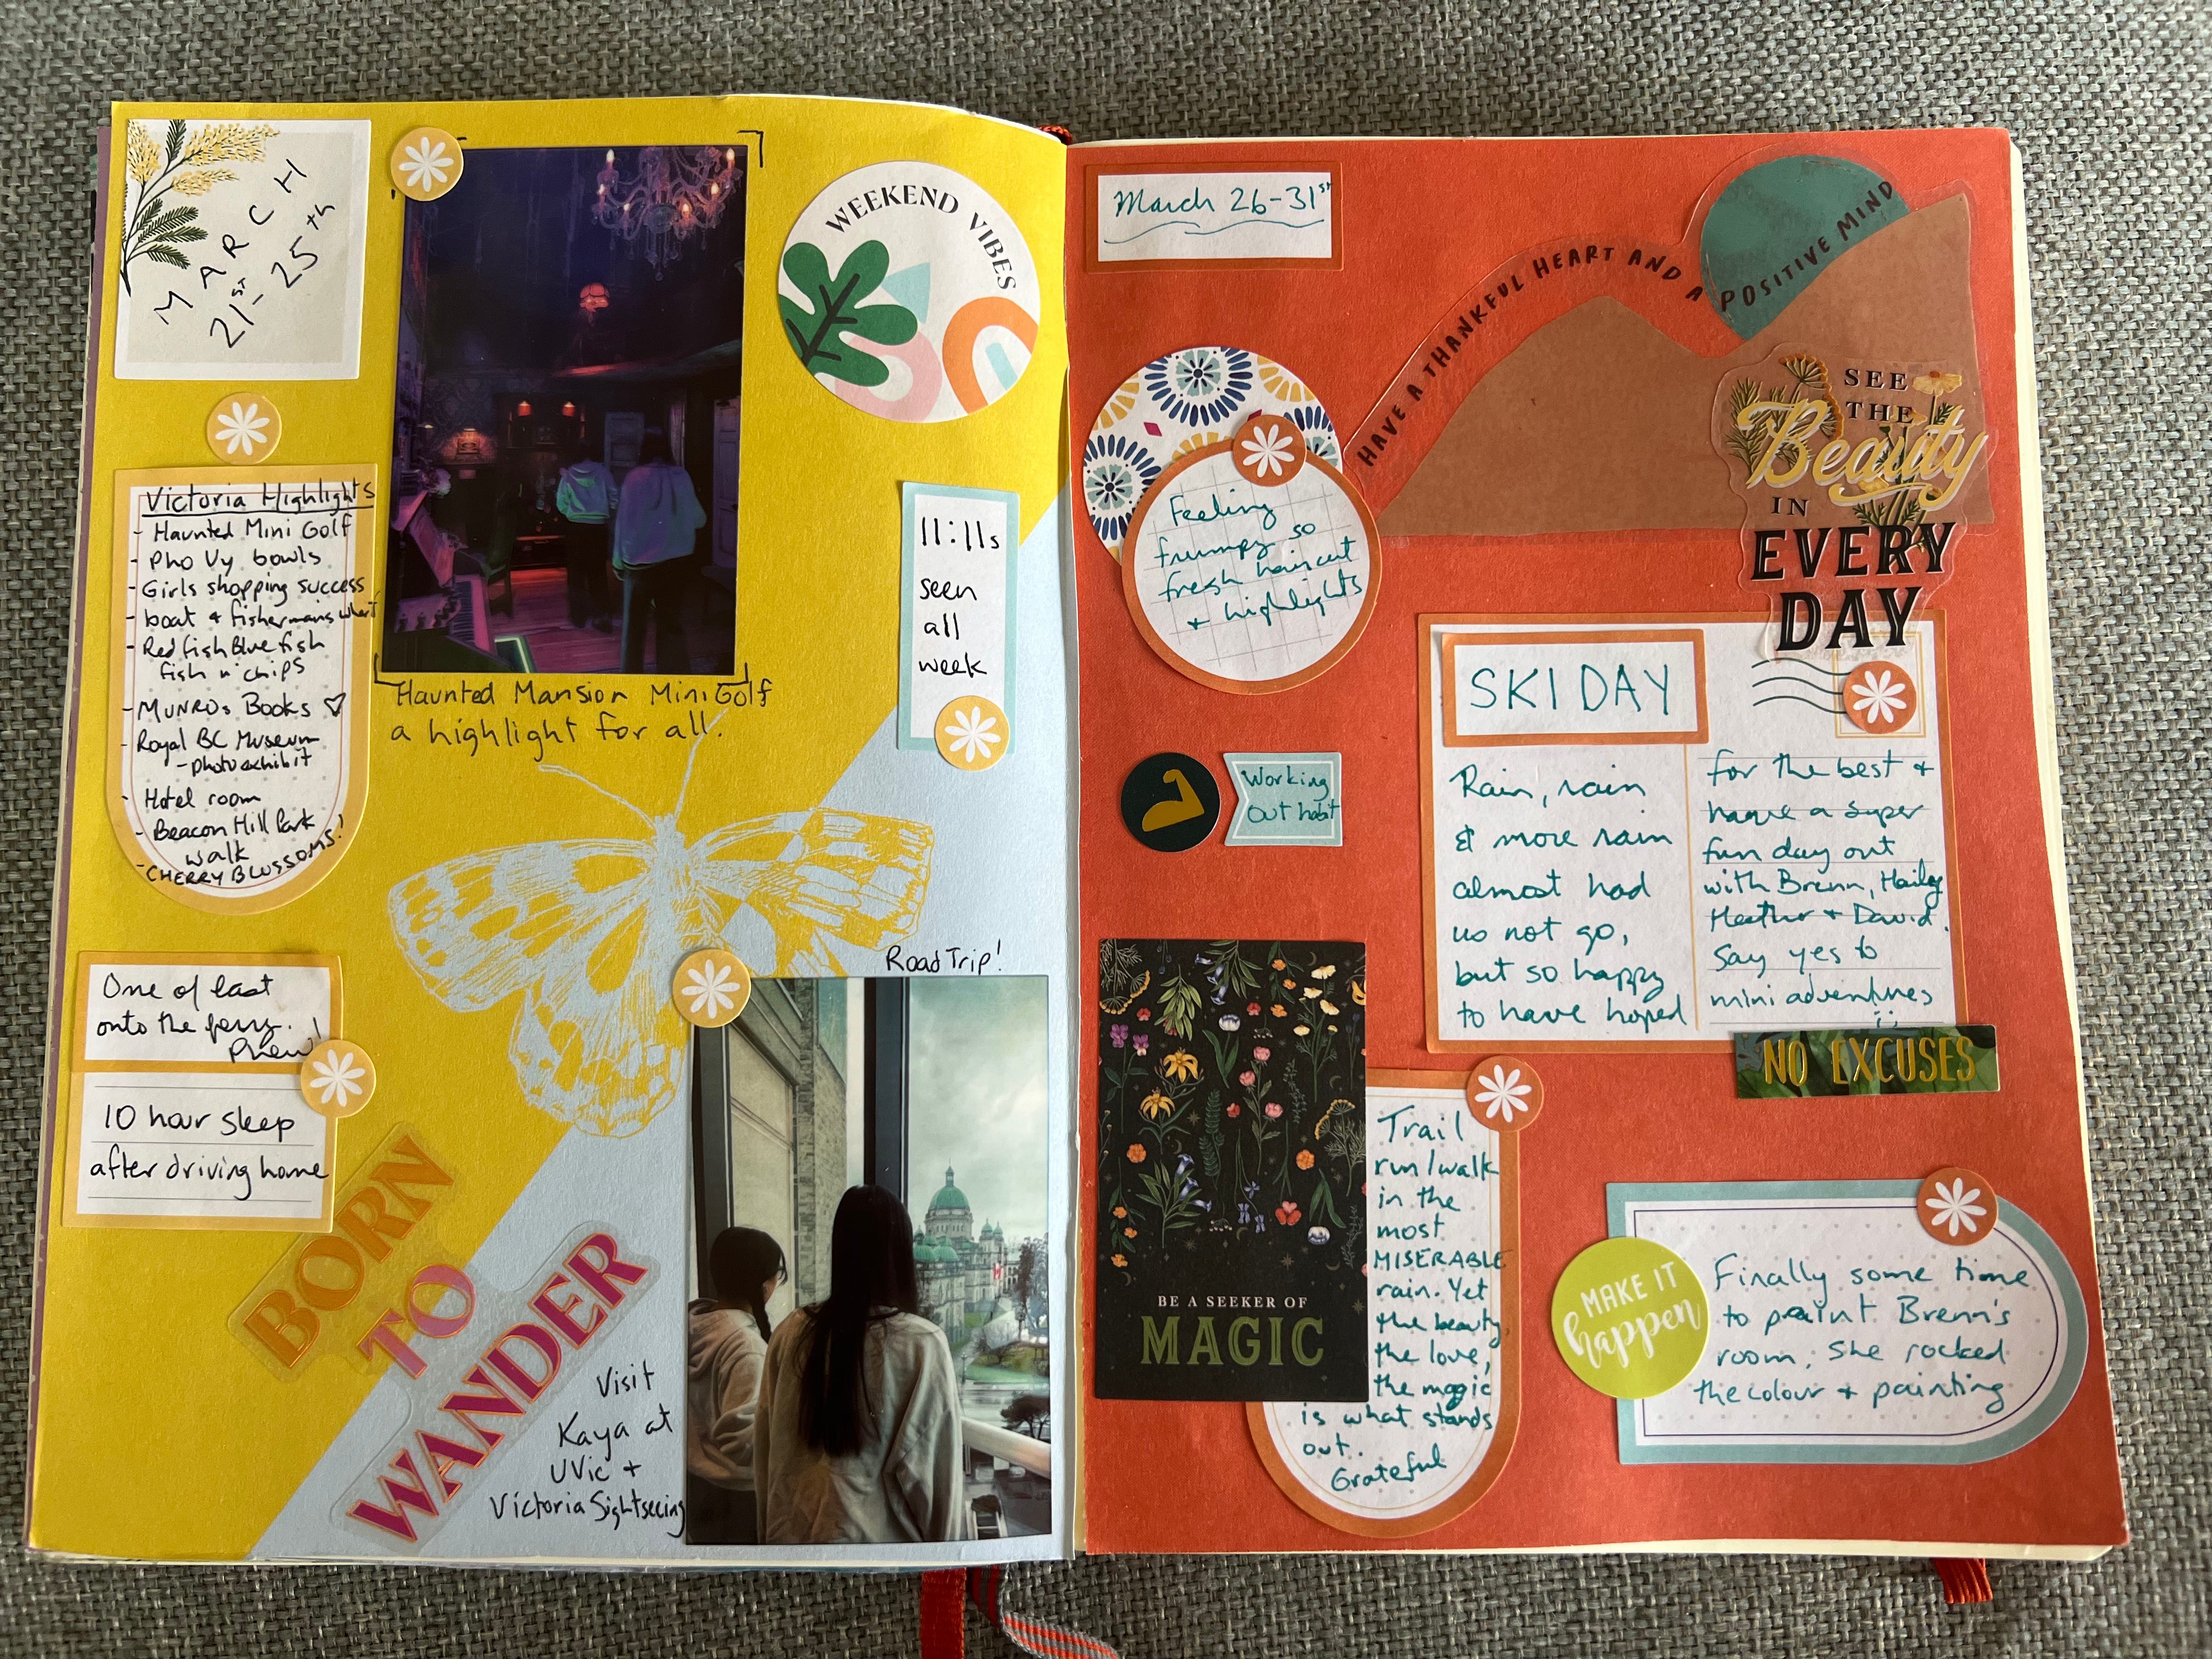 MARCH
21st - 25th
WEEKEND VIBES
Victoria Highlights
- Haunted Mini Golf
- Pho Vy bowls
- Girls shopping success
- boat & fishermans wharf
- Red fish Blue fish
fish n' chips
- MUNROs Books ♡
- Royal BC Museum
- photo exhibit
- Hotel room
- Beacon Hill Park
walk
- CHERRY BLOSSOMS!
Haunted Mansion Mini Golf
a highlight for all.
11:11s
seen
all
week
One of last
onto the ferry.
Phew!
10 hour sleep
after driving home
BORN
TO
WANDER
Road Trip!
Visit
Kaya at
UVic +
Victoria Sightseeing
March 26-31st
HAVE A THANKFUL HEART AND A POSITIVE MIND
SEE
THE
Beauty
IN
EVERY
DAY
Feeling
frumpy so
fresh haircut
+ highlights
Working
Out habit
SKI DAY
Rain, rain
& more rain
almost had
us not go,
but so happy
to have hoped
for the best +
have a super
fun day out
with Brenn, Hailey
Heather + David.
Say yes to
mini adventures
:)
NO EXCUSES
BE A SEEKER OF
MAGIC
Trail
run/walk
in the
most
MISERABLE
rain. Yet
the beauty,
the love,
the magic
is what stands
out.
Grateful
MAKE IT
happen
Finally some time
to paint Brenn's
room. She rocked
the colour + painting